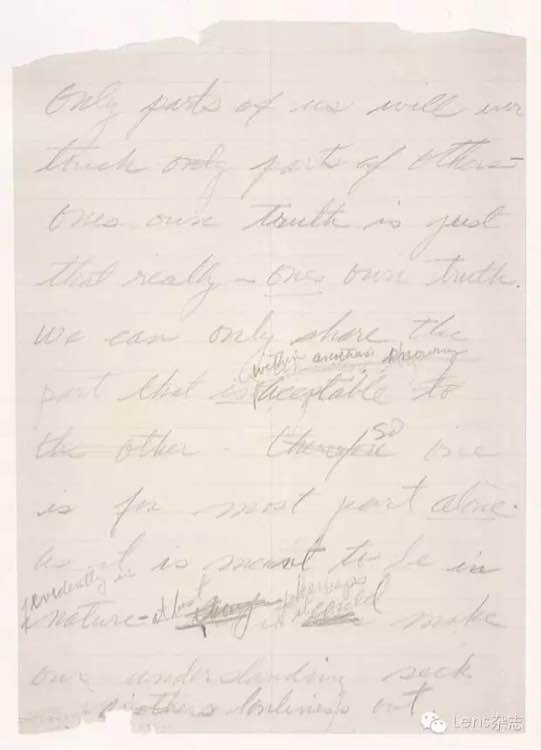 Only parts of us will ever
touch only parts of others—
ones own truth is just
that really — ones own truth.
We can only share the
within anothers knowing
part that is acceptable to
the other — therefore so one
is for most part alone.
as it is meant to be in
evidently in
nature — at best perhaps
it could make
our understanding seek
anothers lonliness out
Lens杂志